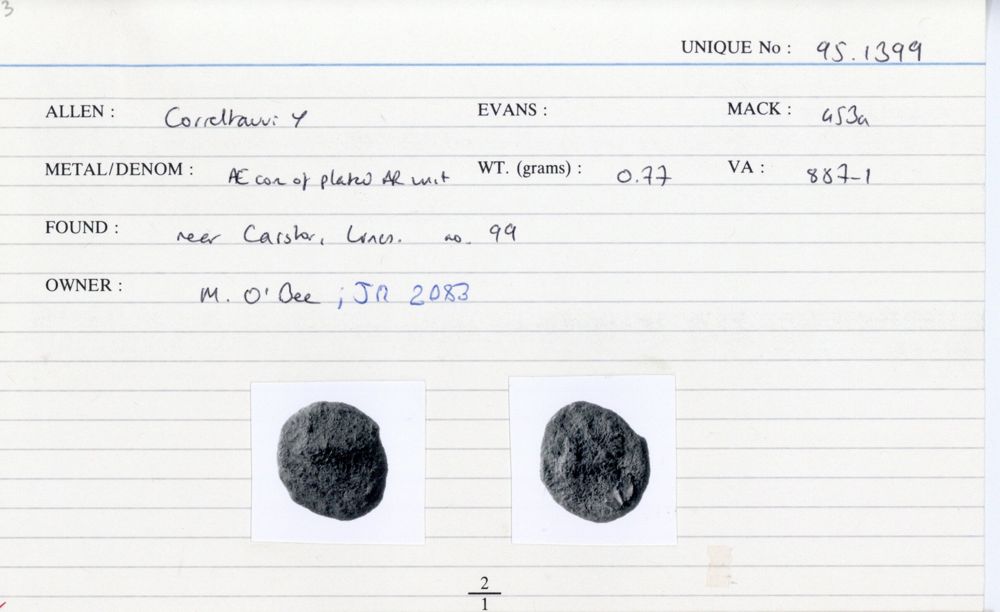 3
UNIQUE No : 95.1399
ALLEN : Corieltauvi Y EVANS : MACK : 453a
METAL/DENOM : AE core of plated AR unit WT. (grams) : 0.77 VA : 887-1
FOUND : near Caistor, Lincs. no. 99
OWNER : M. O'Bee ; JR 2083
2
1